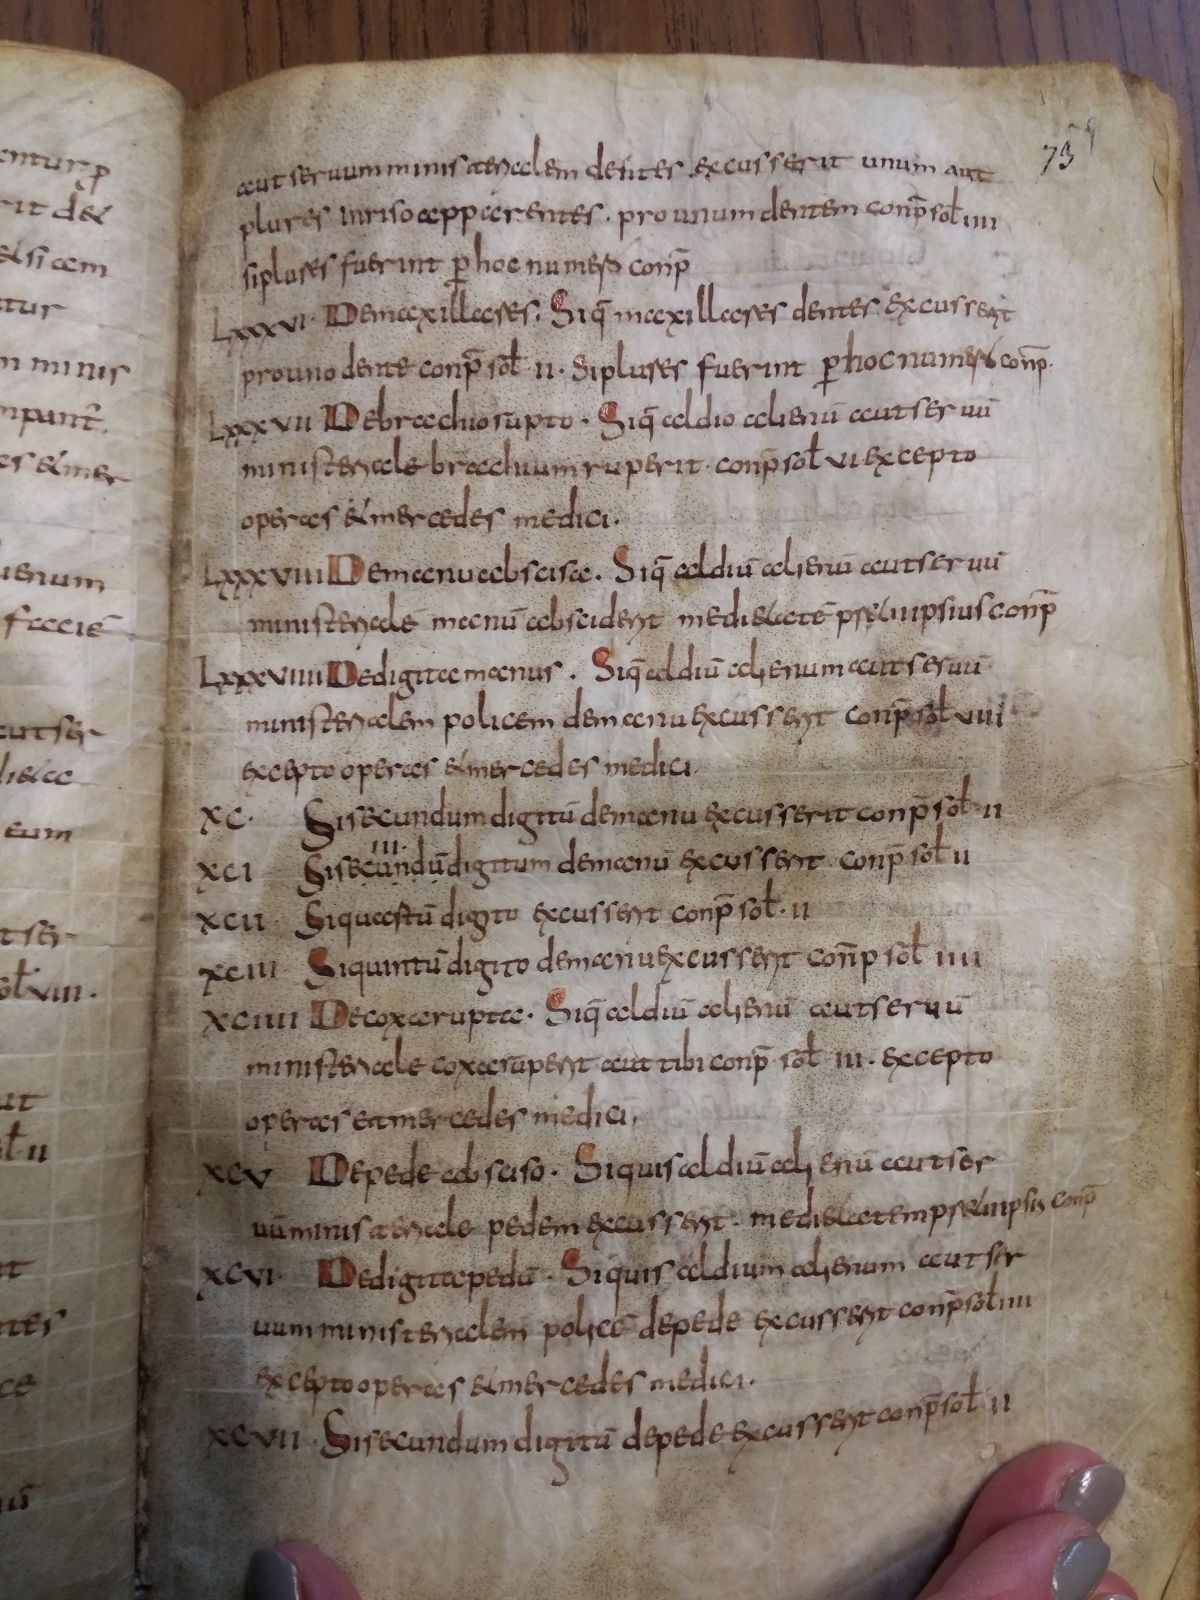 75
aut seruum ministerialem dentes excusserit unum aut
plures in riso apparentes. pro unum dentem conp̄ sol̄ iiii
si plures fuerint p̄ hoc numero conp̄
Lxxxvi. De maxillares. Siq̄ maxillares dentes excusserit
pro uno dente conp̄ sol̄ ii. Si plures fuerint p̄ hoc numero conp̄.
Lxxxvii De brachio rupto. Siq̄ aldio alienū aut seruū
ministeriale brachium ruperit. conp̄ sol̄ vi excepto
operas et mercedes medici.
Lxxxviii De manu abscisa. Siq̄ aldiū alienū aut seruū
ministerialē manū absciderit medietatē p̄tii ipsius conp̄
Lxxxviiii De digita manus. Siq̄ aldiū alienum aut seruū
ministerialem policem de manu excusserit conp̄ sol̄ viii
excepto operas et mercedes medici
xc. Si secundum digitū de manu excusserit conp̄ sol̄ ii
iii.
xci Si secundū digitum de manū excusserit conp̄ sol̄ ii
xcii Si quartū digito excusserit conp̄ sol̄. ii
xciii Si quintū digito de manu excusserit con̄p sol̄ iiii
xciiii De coxa rupta. Siq̄ aldiū alienū aut seruū
ministeriale coxa ruperit aut tibi conp̄ sol̄ iii. excepto
operas et mercedes medici.
xcv De pede absciso. Siquis aldiū alienū aut ser
uū ministeriale pedem excusserit. medietatem p̄tii ipsius conp̄
xcvi De digita pedū. Siquis aldium alienum aut ser
uum ministerialem policē de pede excusserit conp̄ sol̄ iiii
excepto operas et mercedes medici.
xcvii. Si secundum digitū de pede excusserit conp̄ sol̄ ii